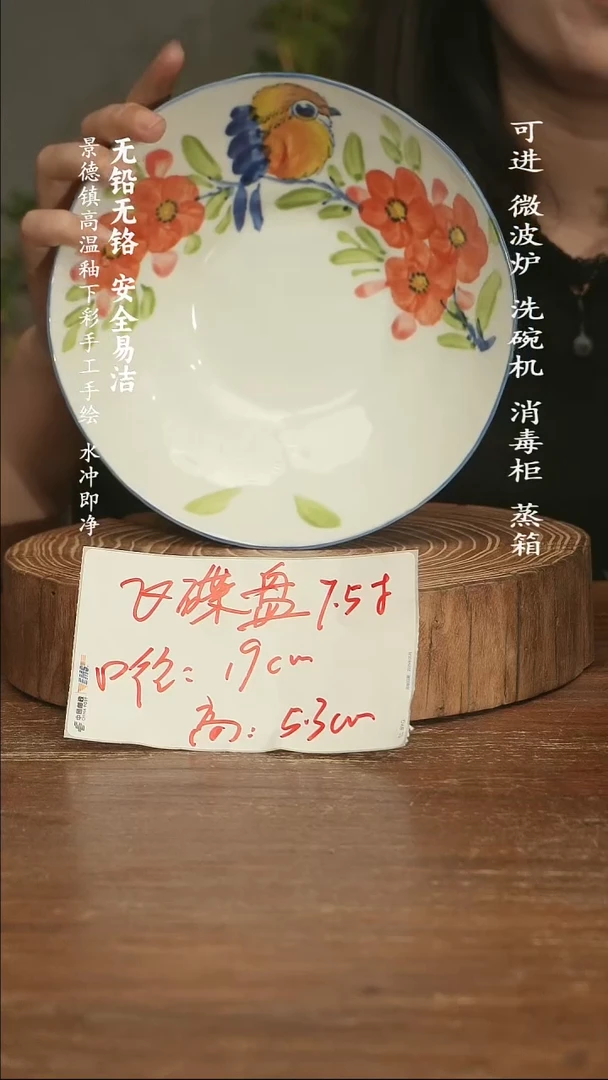 可进 微波炉 洗碗机 消毒柜 蒸箱
无铅无铬 安全易洁
景德镇高温釉下彩手工手绘 水冲即净
飞碟盘 7.5寸
口径：19cm
高：5.3cm
EMS
中国邮政
CHINA POST